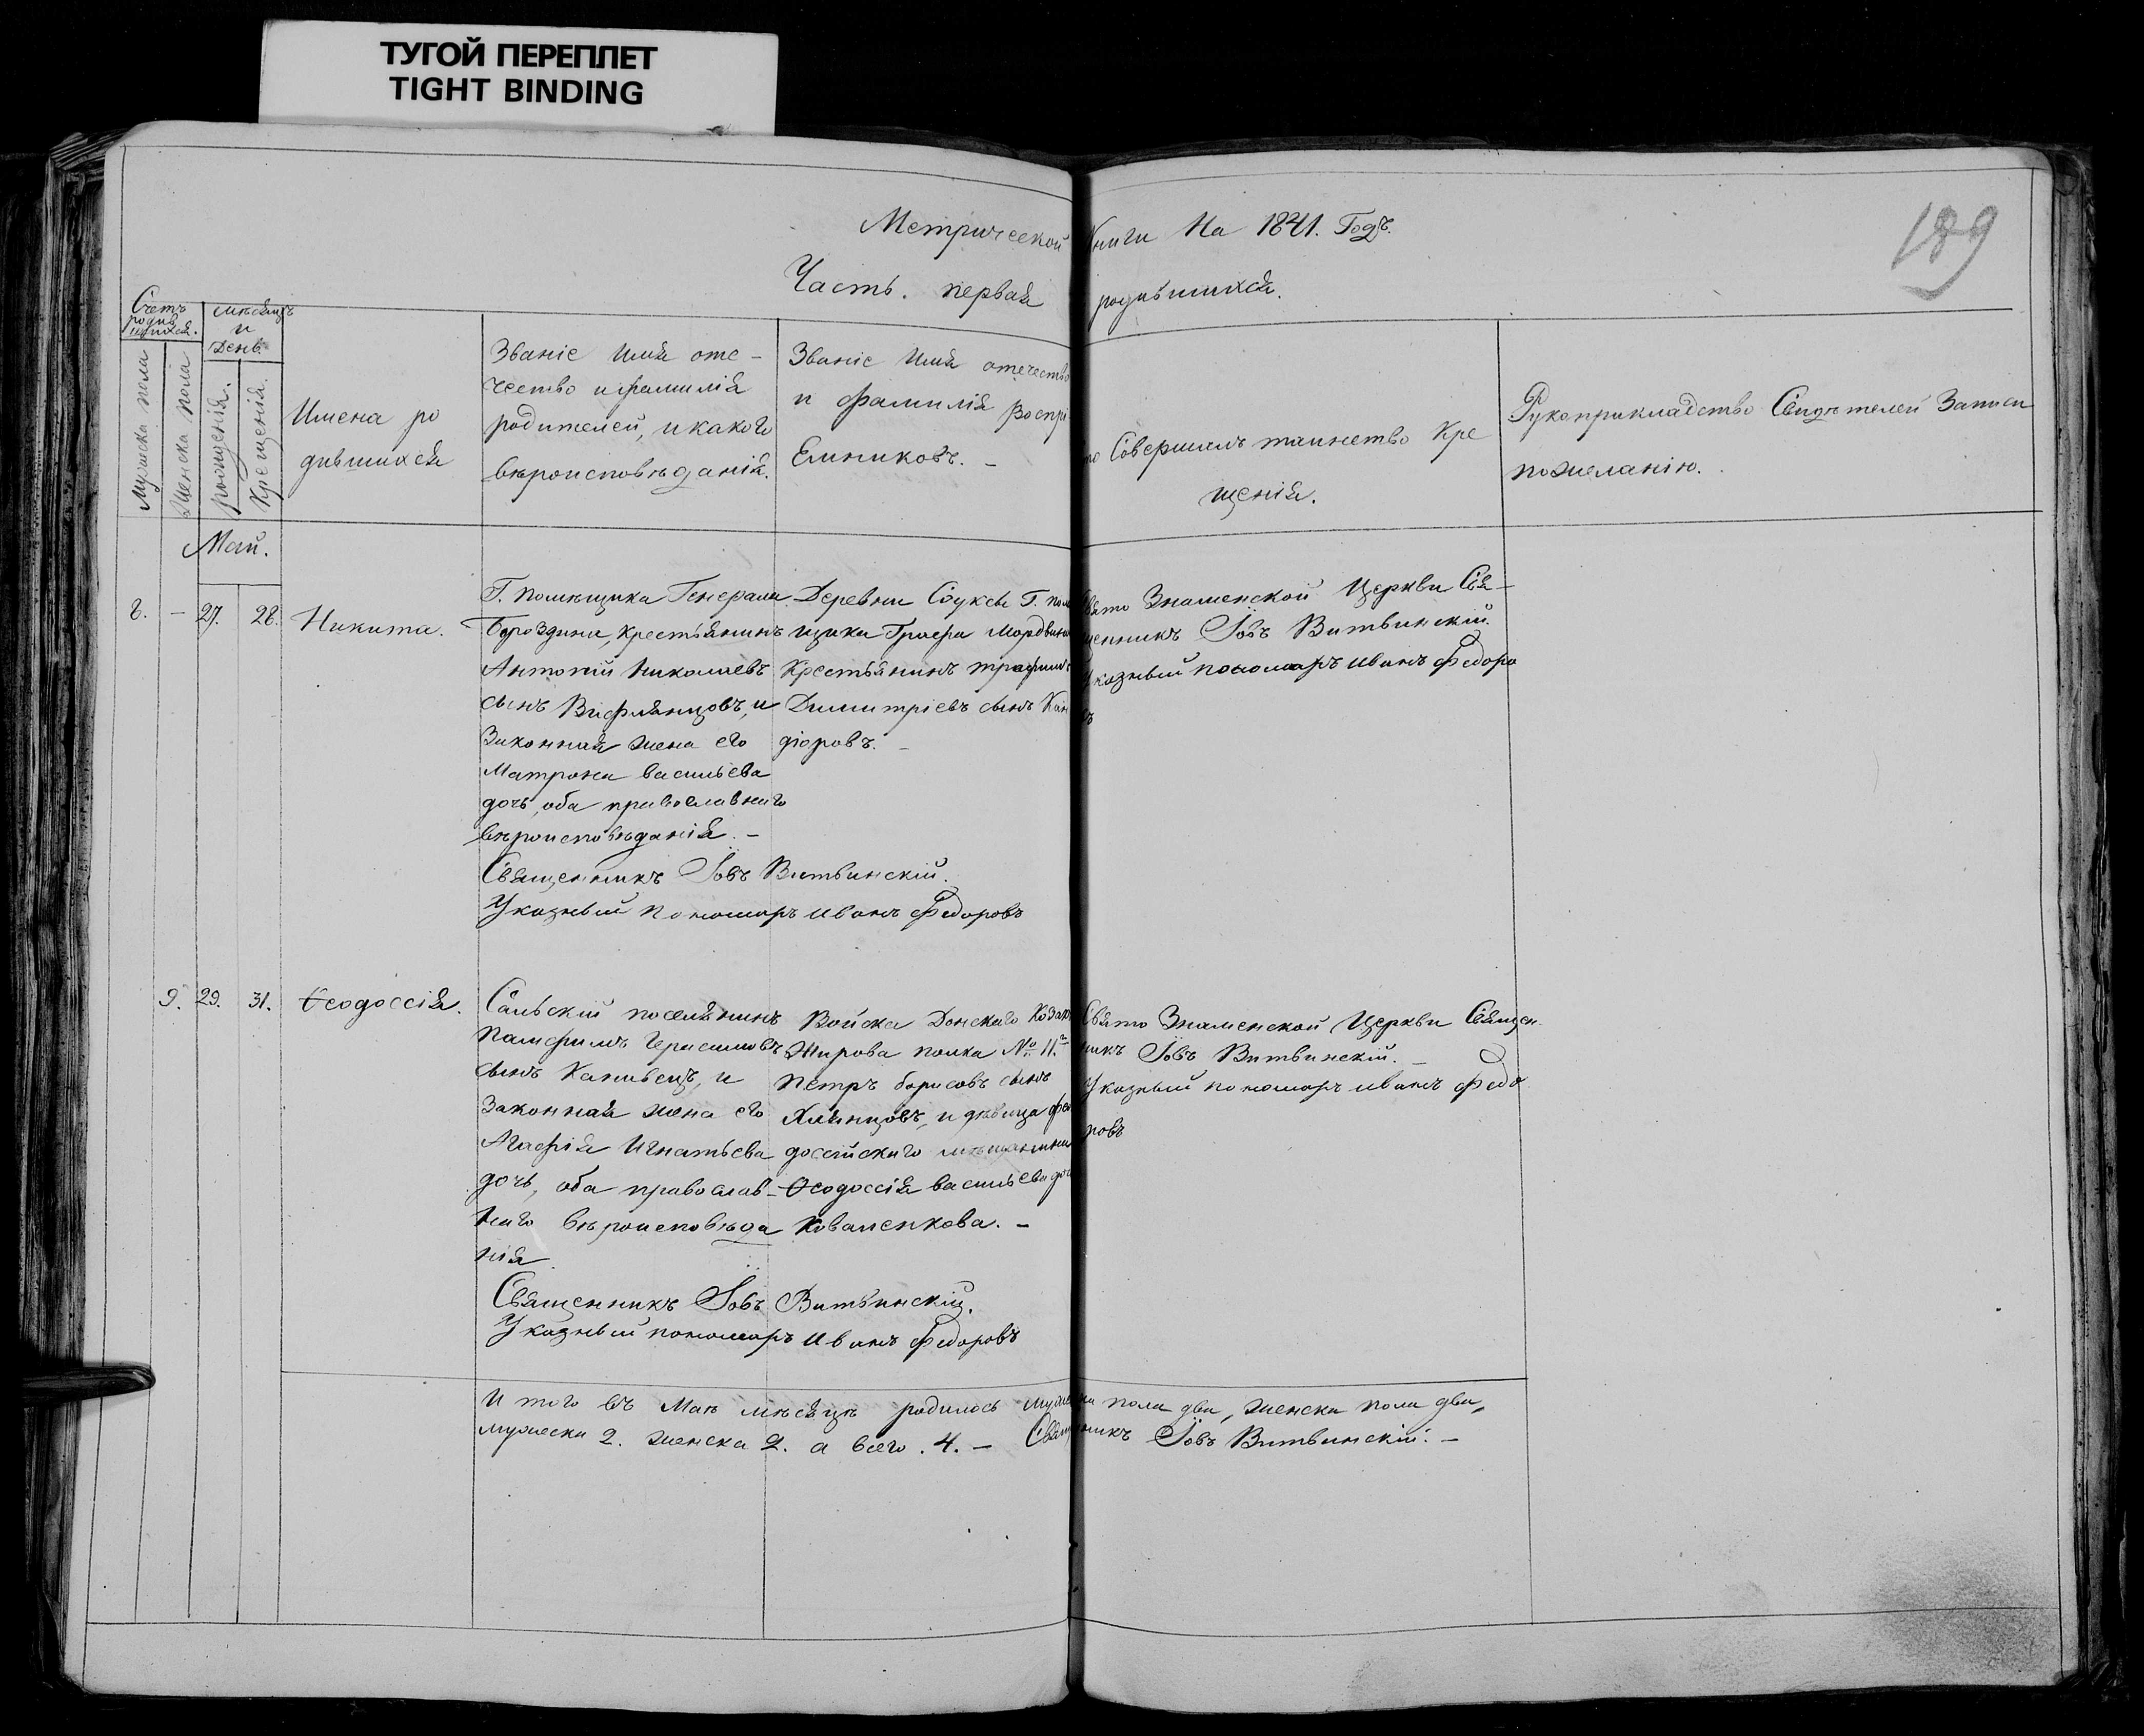 ТУГОЙ ПЕРЕПЛЕТ
TIGHT BINDING
189
Метрической Книги На 1841. Годъ.
Часть. первая родившихся.
Счетъ
родив
шихся.
мѣсяцъ
и
день.
Мужеска пола
Женска пола
рожденія.
Крещенія.
Имена ро
дившихся
Званіе Имя оте-
чество и фамилія
родителей, и какого
вѣроисповѣданія.
Званіе Имя отечество
и фамилія воспрі
Емниковъ. -
то Совершалъ таинство Кре
щенія.
Рукоприкладство Свидѣтелей Записи
по желанію.
Май.
8. - 27. 28. Никита.
Г. Помѣщика Генерала
Бороздина, крестьянинъ
Антоній Николаевъ
сынъ Вифлянцовъ, и
Законная жена его
Матрона васильева
дочь, оба православнаго
вѣроисповѣданія. -
Священникъ Іовъ Витвинскій.
Указный пономарь Иванъ Федоровъ
Деревни Г. пом
щика Графа Мордвин
Крестьянинъ
Димитріевъ сынъ Кан
діоровъ. -
Свято Знаменской Церкви Свя-
щенникъ Іовъ Витвинскій.
Указный пономарь Иванъ Федоро
въ
9. 29. 31. Ѳеодоссія.
поселянинъ
Памфилъ Герасимовъ
сынъ Канивецъ, и
Законная жена его
Агафія Игнатьева
дочь, оба православ-
наго вѣроисповѣда
нія
Священникъ Іовъ Витвинскій.
Указный пономарь Иванъ Федоровъ
Войска Донскаго Козак
Жирова полка № 11.го
Петръ борисовъ сынъ
Хлянцовъ, и дѣвица фео
доссійскаго мѣщанина
Ѳеодоссія васильева доч
Коваленкова. -
Свято Знаменской Церкви Священ
никъ Іовъ Витвинскій. -
Указный пономарь Иванъ Федо
ровъ
И того въ Маѣ мѣсяцѣ родилось мужеска пола два, женска пола два,
мужеска 2. женска 2. а всего. 4. - Священникъ Іовъ Витвинскій. -